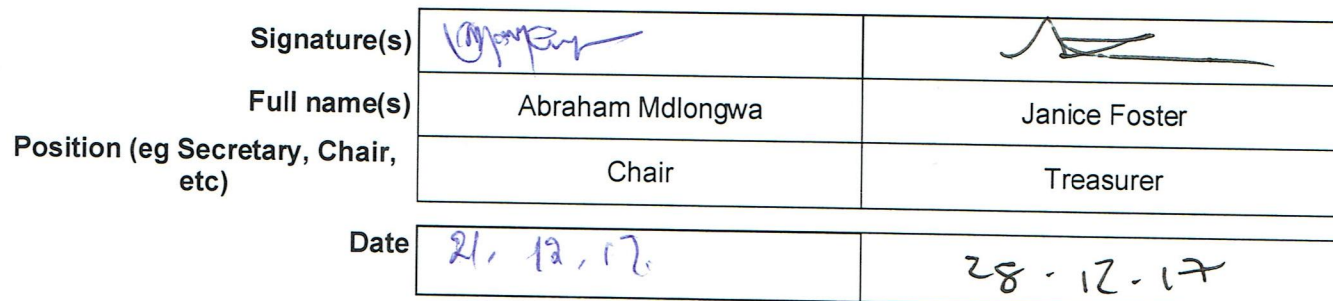 Signature(s)
Full name(s) Abraham Mdlongwa Janice Foster
Position (eg Secretary, Chair, etc) Chair Treasurer
Date 21. 12. 17. 28.12.17